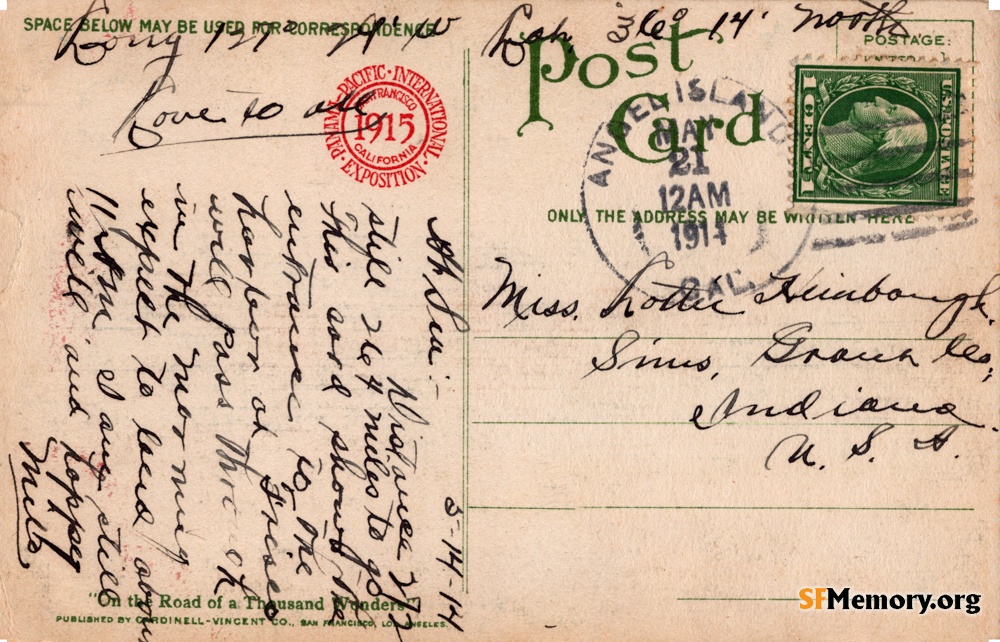 SPACE BELOW MAY BE USED FOR CORRESPONDENCE
Long 121° 21' W Lat, 36° 14' North
Love to all
PANAMA·PACIFIC·INTERNATIONAL·EXPOSITION·
SAN FRANCISCO
1915
CALIFORNIA
Post Card
POSTAGE:
ANGEL ISLAND
MAY
21
12AM
1914
CAL.
U.S. POSTAGE
1 CENT 1
ONLY THE ADDRESS MAY BE WRITTEN HERE
Miss. Lottie Heinbaugh.
Sims, Grant Co,
Indiana.
U. S. A.
5-14-14
Distance
still 264 miles to go
This card shows the
entrance to the
harbor at Frisco
will pass through
in the morning
expect to land about
11 A.M I am still
well and happy
Mills
"On the Road of a Thousand Wonders"
PUBLISHED BY CARDINELL-VINCENT CO., SAN FRANCISCO, LOS ANGELES.
SFMemory.org